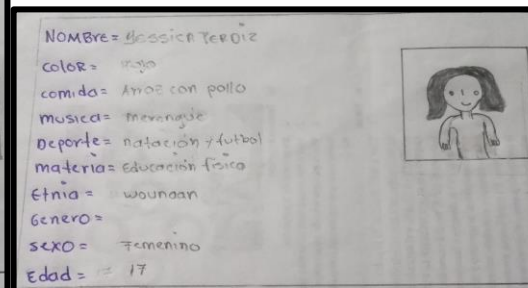 NOMBre= Yessica Terdiz
coloR= rojo
comida= Arroz con pollo
musica= merengue
Deporte= natación y futbol
materia= Educación fisica
Etnia= wounaan
Genero=
sexo= Femenino
Edad= = 17